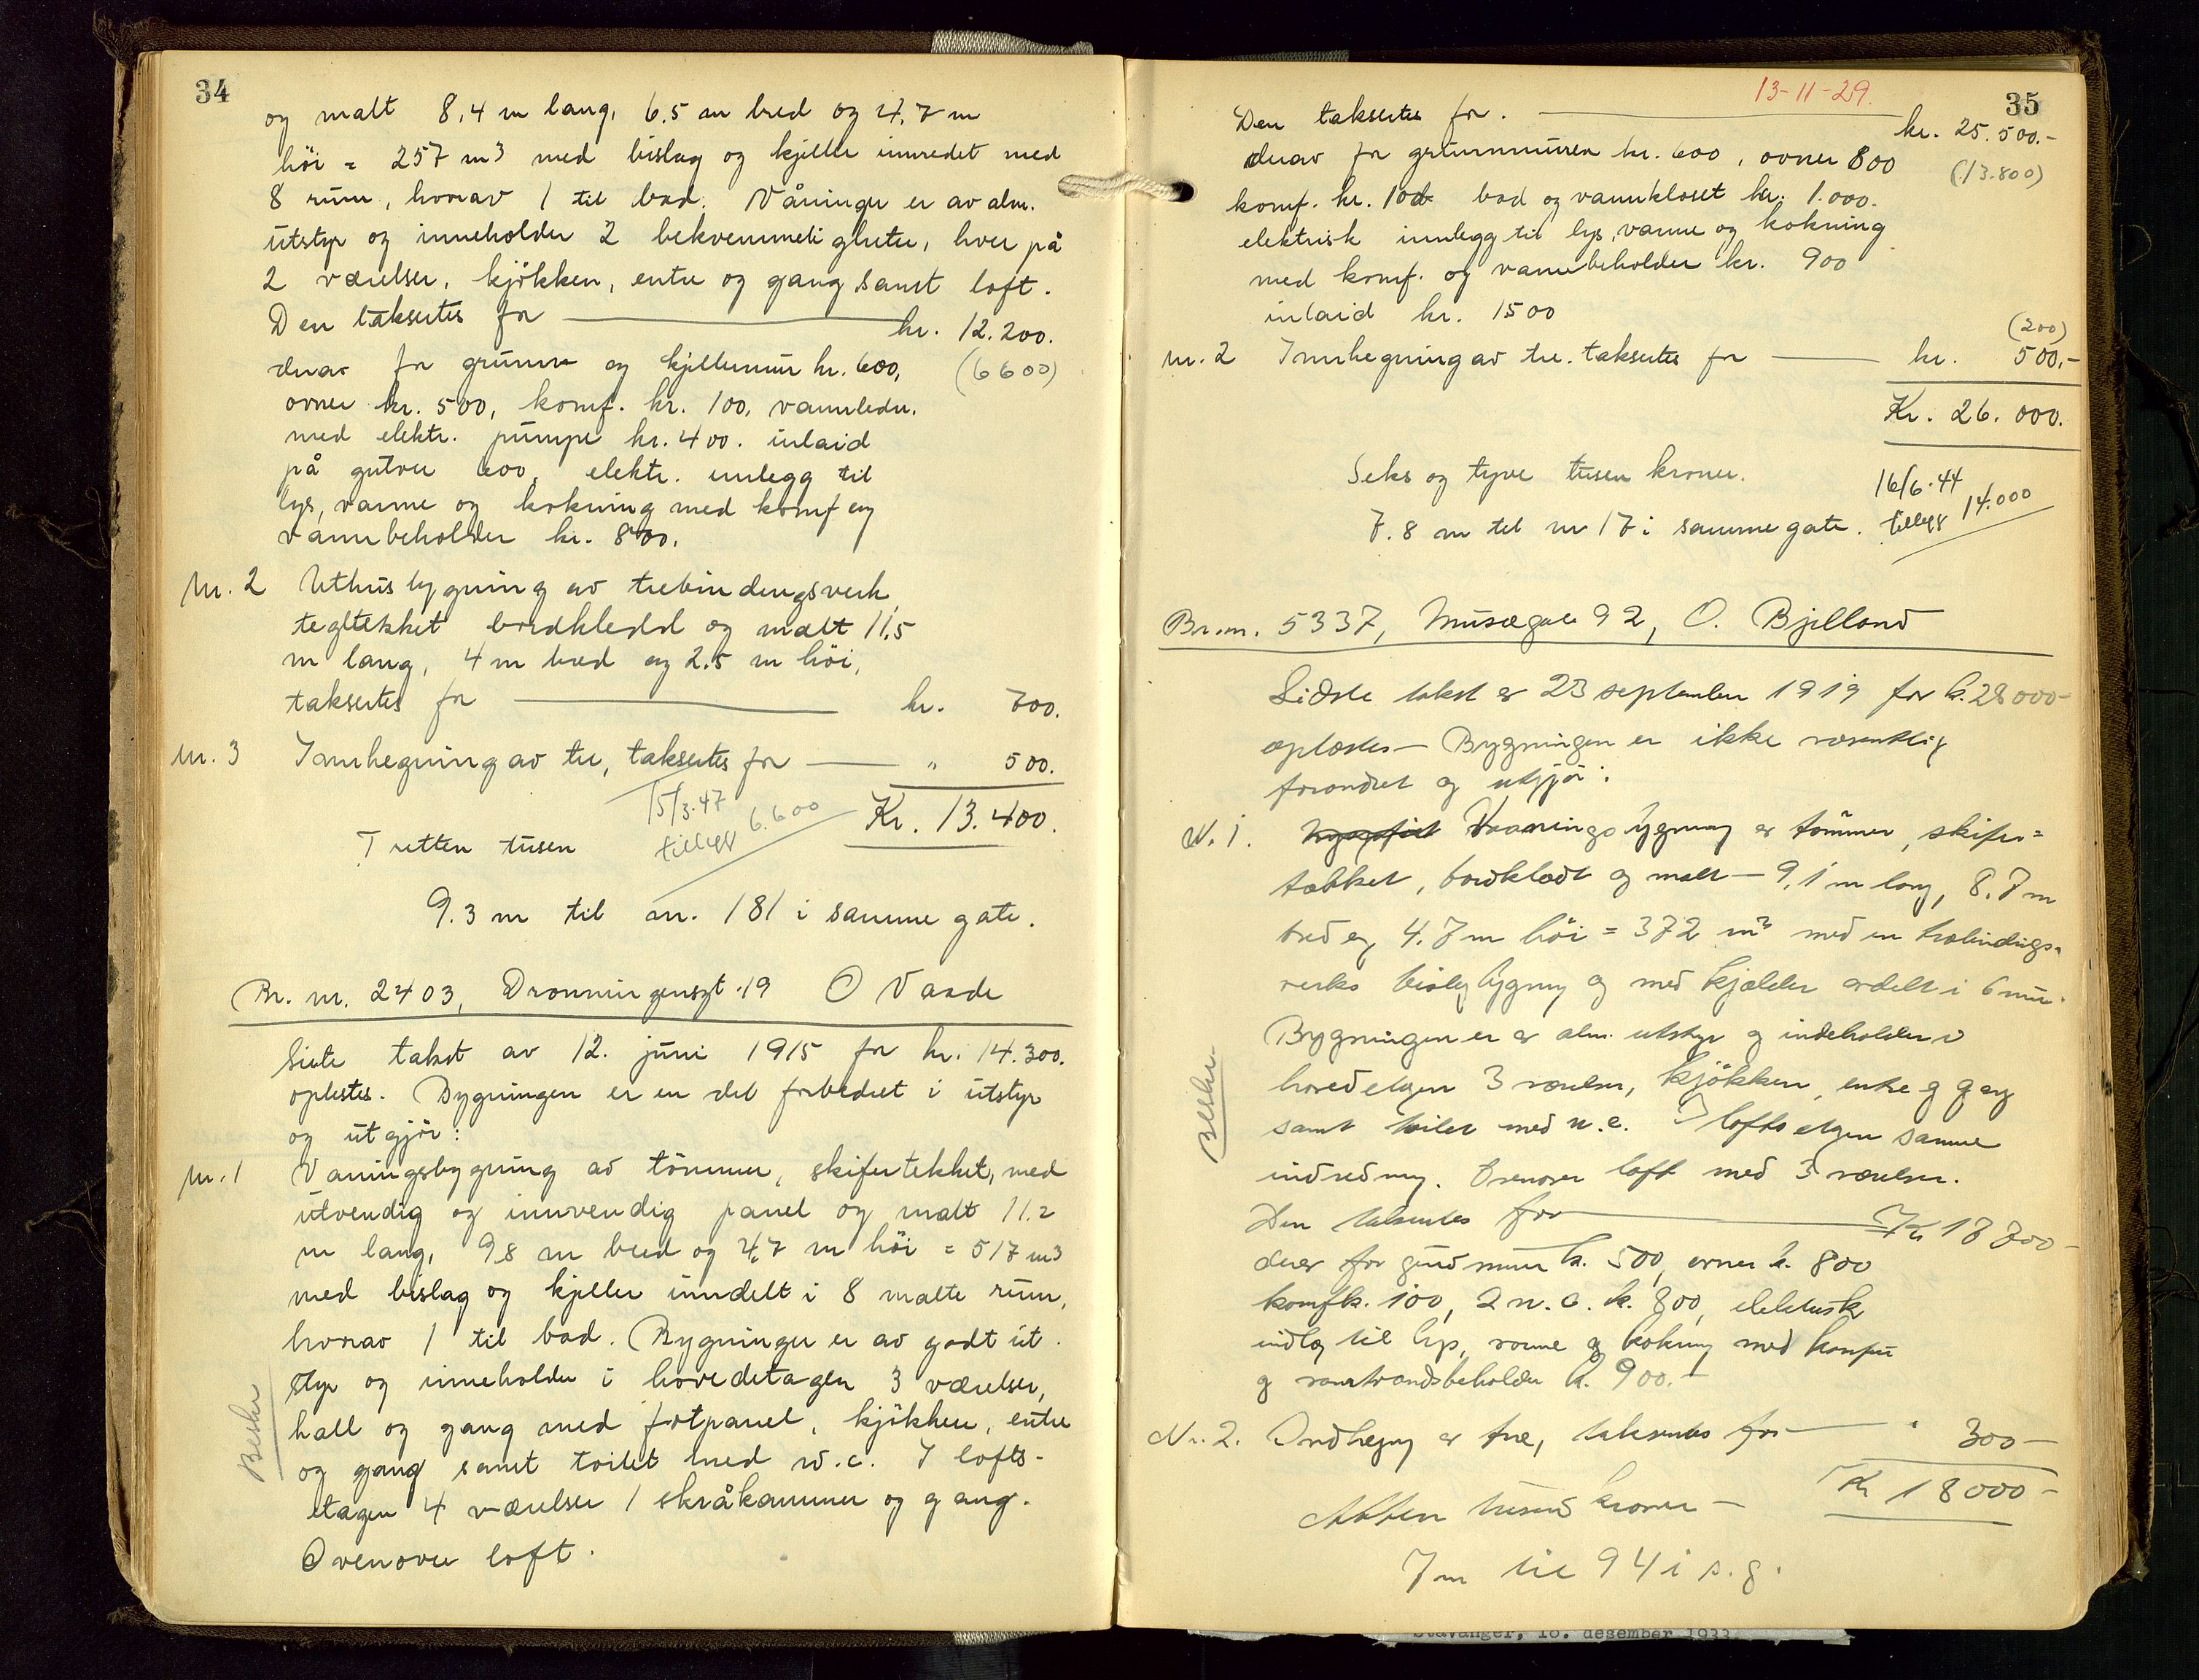 34
og malt 8,4 m lang, 6.5 m bred og 4,7 m
höi = 257 m3 med bislag og kjeller innredet med
8 rum, hvorav 1 til bad. Våninger er av alm.
utstyr og inneholder 2 bekvemmeligheter, hver på
2 værelser, kjökken, entre og gang samt loft.
Den taksertes for kr. 12.200.
derav for grunn og kjellermur kr. 600, (6600)
ovner kr. 500, komf. kr. 100, vannledn.
med elektr. pumpe kr. 400. inlaid
på gulver 600, elektr. innlegg til
lys, varme og kokning med komf og
vannbeholder kr. 800.
Nr. 2 Uthusbygning av trebindingsverk
tegltekket bordkledd og malt 11,5
m lang, 4 m bred og 2.5 m höi,
taksertes for kr. 700.
Nr. 3 Innhegning av tre, taksertes for " 500.
15/3.47 tillegg 6.600
Kr. 13.400.
Tretten tusen
9.3 m til nr. 181 i samme gate.
Br. nr. 2403, Dronningensgt. 19 O Vaade
Siste takst av 12. juni 1915 for kr. 14.300.
oplestes. Bygningen er en del forbedret i utstyr
og utgjör:
Nr. 1 Vaningsbygning av tömmer, skifertekket, med
utvendig og innvendig panel og malt 11.2
m lang, 9,8 m bred og 4,7 m höi = 517 m3
med bislag og kjeller inndelt i 8 malte rum,
hvorav 1 til bad. Bygninger er av godt ut
styr og inneholder i hovedetagen 3 værelser,
hall og gang med fotpanel, kjökken, entre
og gang samt toilet med w.c. I lofts-
etagen 4 værelser 1 skråkammer og gang.
Ovenover loft.
Beskr
13-11-29.
35
Den taksertes for. kr. 25.500.-
derav for grunnmuren kr. 600, ovner 800 (13.800)
komf. kr. 100 bad og vannkloset kr. 1.000.
elektrisk innlegg til lys, varme og kokning
med komf. og vannbeholder kr. 900
inlaid kr. 1500
(200)
nr. 2 Innhegning av tre. taksertes for kr. 500.-
Kr. 26.000.
Seks og tyve tusen kroner.
16/6.44 tillegg 14.000
7.8 m til nr 17 i samme gate.
Br.nr. 5337, Musægate 92, O. Bjelland
Sidste takst av 23 september 1919 for kr. 28000-
oplæstes - Bygningen er ikke væsentlig
forandret og utgjör:
Nr. 1. Vaaningsbygning av tömmer, skifer=
tækket, bordklædt og malt - 9,1 m lang, 8.7 m
bred og 4.7 m höi = 372 m3 med en træbindings-
verks bislagbygning og med kjælder avdelt i 6 rum.
Bygningen er av alm. utstyr og indeholder i
hovedetagen 3 værelser, kjökken, entre og gang
samt toilet med w.c. I loftsetagen samme
indredning. Ovenover loft med 3 værelser.
Den taksertes for Kr 17700-
derav for grundmur kr. 500, ovner kr. 800
komf kr. 100, 2 w.c. kr. 800, elektrisk
indlæg til lys, varme og kokning med komfur
og varmtvandsbeholder kr. 900.-
Nr. 2. Indhegning av træ, taksertes for " 300-
Kr 18000-
Atten tusend kroner -
7 m til 94 i s.g.
Beskr.
Stavanger, 16. desember 1933.